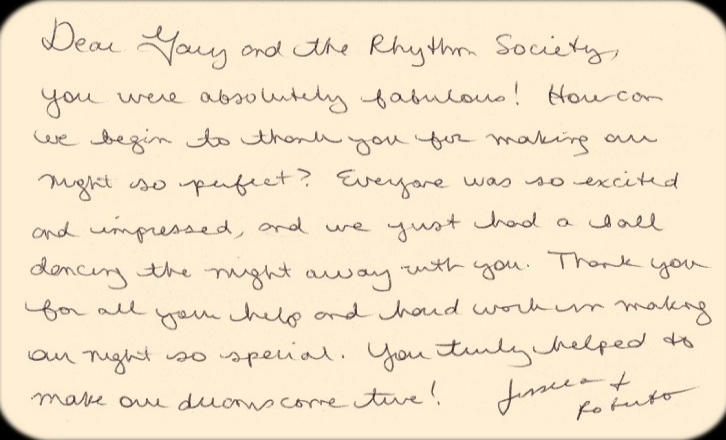 Dear Gary and the Rhythm Society,
you were absolutely fabulous! How can
we begin to thank you for making our
night so perfect? Everyone was so excited
and impressed, and we just had a ball
dancing the night away with you. Thank you
for all your help and hard work in making
our night so special. You truly helped to
make our dreams come true! Jessica +
Roberto